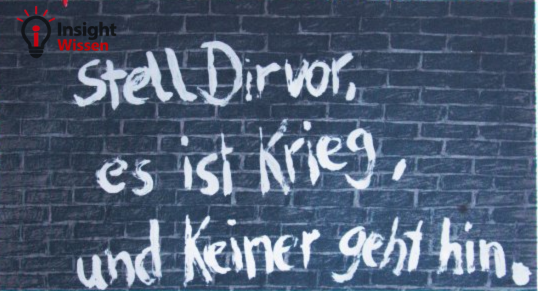 Insight
Wissen
Stell Dir vor,
es ist Krieg,
und Keiner geht hin.